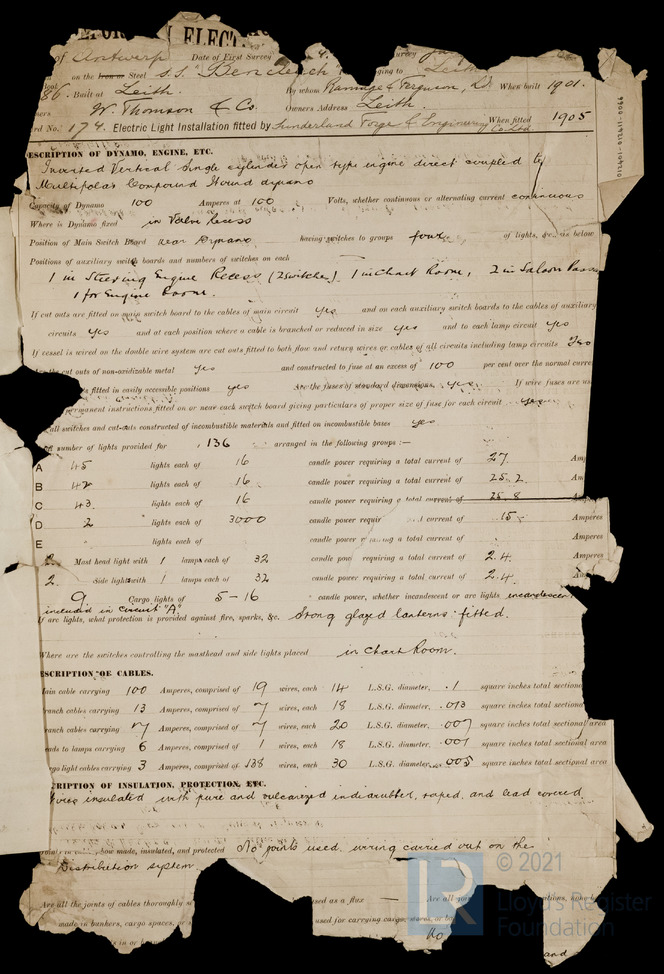 ELECT
of Antwerp Date of First Survey
on the Iron or Steel S.S. "Benclench" Leith
86. Built at Leith. By whom Ramage & Ferguson, Ld. When built 1901.
W. Thomson & Co. Owners Address Leith.
rd No. 174. Electric Light Installation fitted by Sunderland Forge & Engineering Co. Ltd When fitted 1905
ESCRIPTION OF DYNAMO, ENGINE, ETC.
Inverted Vertical Single cylinder open type engine direct coupled to
Multipolar Compound Wound dynamo
Capacity of Dynamo 100 Amperes at 100 Volts, whether continuous or alternating current continuous
Where is Dynamo fixed in Valve Recess
Position of Main Switch Board near Dynamo having switches to groups four of lights, &c., as below
Positions of auxiliary switch boards and numbers of switches on each
1 in Steering Engine Recess (2 switches) 1 in Chart Room, 2 in Saloon
1 for Engine Room.
If cut outs are fitted on main switch board to the cables of main circuit yes and on each auxiliary switch boards to the cables of auxiliary
circuits yes and at each position where a cable is branched or reduced in size yes and to each lamp circuit yes
If vessel is wired on the double wire system are cut outs fitted to both flow and return wires or cables of all circuits including lamp circuits
the cut outs of non-oxidizable metal yes and constructed to fuse at an excess of 100 per cent over the normal curre
ts fitted in easily accessible positions yes Are the fuses of standard dimensions yes If wire fuses are us
permanent instructions fitted on or near each switch board giving particulars of proper size of fuse for each circuit yes
all switches and cut-outs constructed of incombustible materials and fitted on incombustible bases yes
number of lights provided for 136 arranged in the following groups :—
A 45 lights each of 16 candle power requiring a total current of 27 Am
B 42 lights each of 16 candle power requiring a total current of 25.2 Am
C 43 lights each of 16 candle power requiring a total current of 25.8 Am
D 2 lights each of 3000 candle power requir t current of 15 Amperes
E lights each of candle power requiring a total current of Amperes
2 Mast head light with 1 lamps each of 32 candle power requiring a total current of 2.4 Amperes
2 Side light with 1 lamps each of 32 candle power requiring a total current of 2.4 Am
9 Cargo lights of 5–16 candle power, whether incandescent or arc lights incandescent
included in circuit "A"
If arc lights, what protection is provided against fire, sparks, &c. Strong glazed lanterns fitted.
Where are the switches controlling the masthead and side lights placed in Chart Room.
ESCRIPTION OF CABLES.
ain cable carrying 100 Amperes, comprised of 19 wires, each 14 L.S.G. diameter, .1 square inches total sectiona
ranch cables carrying 13 Amperes, comprised of 7 wires, each 18 L.S.G. diameter, .013 square inches total sectiona
ranch cables carrying 7 Amperes, comprised of 7 wires, each 20 L.S.G. diameter, .007 square inches total sectional area
eads to lamps carrying 6 Amperes, comprised of 1 wires, each 18 L.S.G. diameter, .001 square inches total sectional area
rgo light cables carrying 3 Amperes, comprised of 138 wires, each 30 L.S.G. diameter, .005 square inches total sectional area
SCRIPTION OF INSULATION, PROTECTION, ETC.
Wires insulated with pure and vulcanized indiarubber, taped, and lead covered
how made, insulated, and protected No joints used, wiring carried out on the
Distribution system
Are all the joints of cables thoroughly s sed as a flux — Are all
made in bunkers, cargo spaces, or used for carrying cargo, stores, or ba No
© 2021
Lloyd's Register
Foundation
and